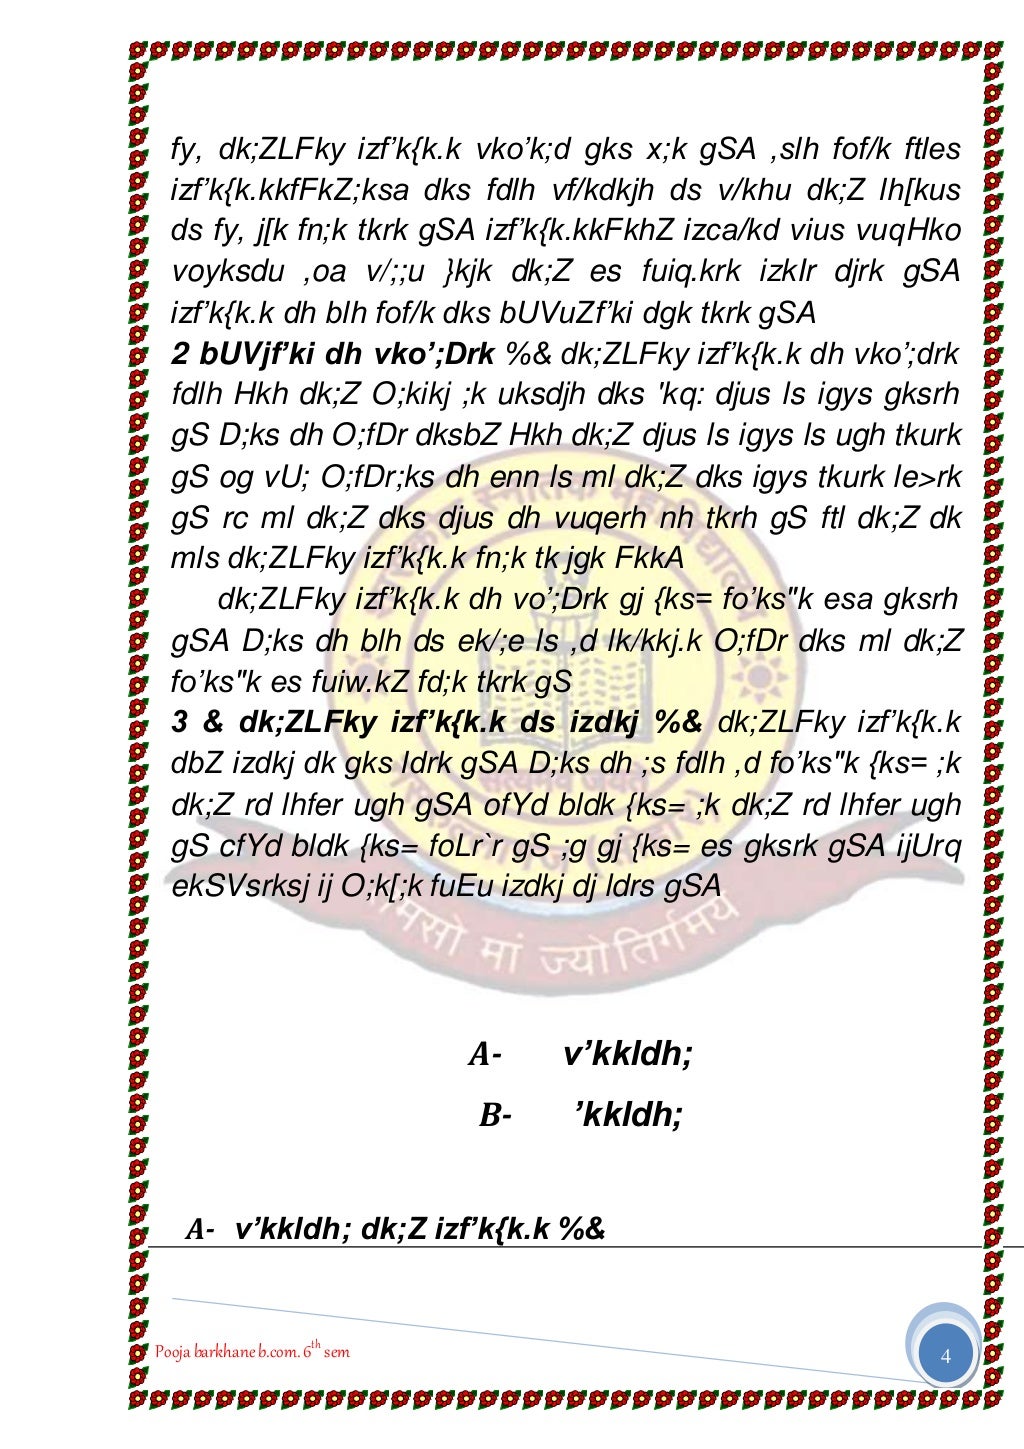 fy, dk;ZLFky izf’k{k.k vko’k;d gks x;k gSA ,slh fof/k ftles
izf’k{k.kkfFkZ;ksa dks fdlh vf/kdkjh ds v/khu dk;Z lh[kus
ds fy, j[k fn;k tkrk gSA izf’k{k.kkFkhZ izca/kd vius vuqHko
voyksdu ,oa v/;;u }kjk dk;Z es fuiq.krk izkIr djrk gSA
izf’k{k.k dh blh fof/k dks bUVuZf’ki dgk tkrk gSA
2 bUVjf’ki dh vko’;Drk %& dk;ZLFky izf’k{k.k dh vko’;drk
fdlh Hkh dk;Z O;kikj ;k uksdjh dks 'kq: djus ls igys gksrh
gS D;ks dh O;fDr dksbZ Hkh dk;Z djus ls igys ls ugh tkurk
gS og vU; O;fDr;ks dh enn ls ml dk;Z dks igys tkurk le>rk
gS rc ml dk;Z dks djus dh vuqerh nh tkrh gS ftl dk;Z dk
mls dk;ZLFky izf’k{k.k fn;k tk jgk FkkA
dk;ZLFky izf’k{k.k dh vo’;Drk gj {ks= fo’ks"k esa gksrh
gSA D;ks dh blh ds ek/;e ls ,d lk/kkj.k O;fDr dks ml dk;Z
fo’ks"k es fuiw.kZ fd;k tkrk gS
3 & dk;ZLFky izf’k{k.k ds izdkj %& dk;ZLFky izf’k{k.k
dbZ izdkj dk gks ldrk gSA D;ks dh ;s fdlh ,d fo’ks"k {ks= ;k
dk;Z rd lhfer ugh gSA ofYd bldk {ks= ;k dk;Z rd lhfer ugh
gS cfYd bldk {ks= foLr`r gS ;g gj {ks= es gksrk gSA ijUrq
ekSVsrksj ij O;k[;k fuEu izdkj dj ldrs gSA
मसो मां ज्योतिर्गमय
A- v’kkldh;
B- ’kkldh;
A- v’kkldh; dk;Z izf’k{k.k %&
Pooja barkhane b.com. 6th sem
4